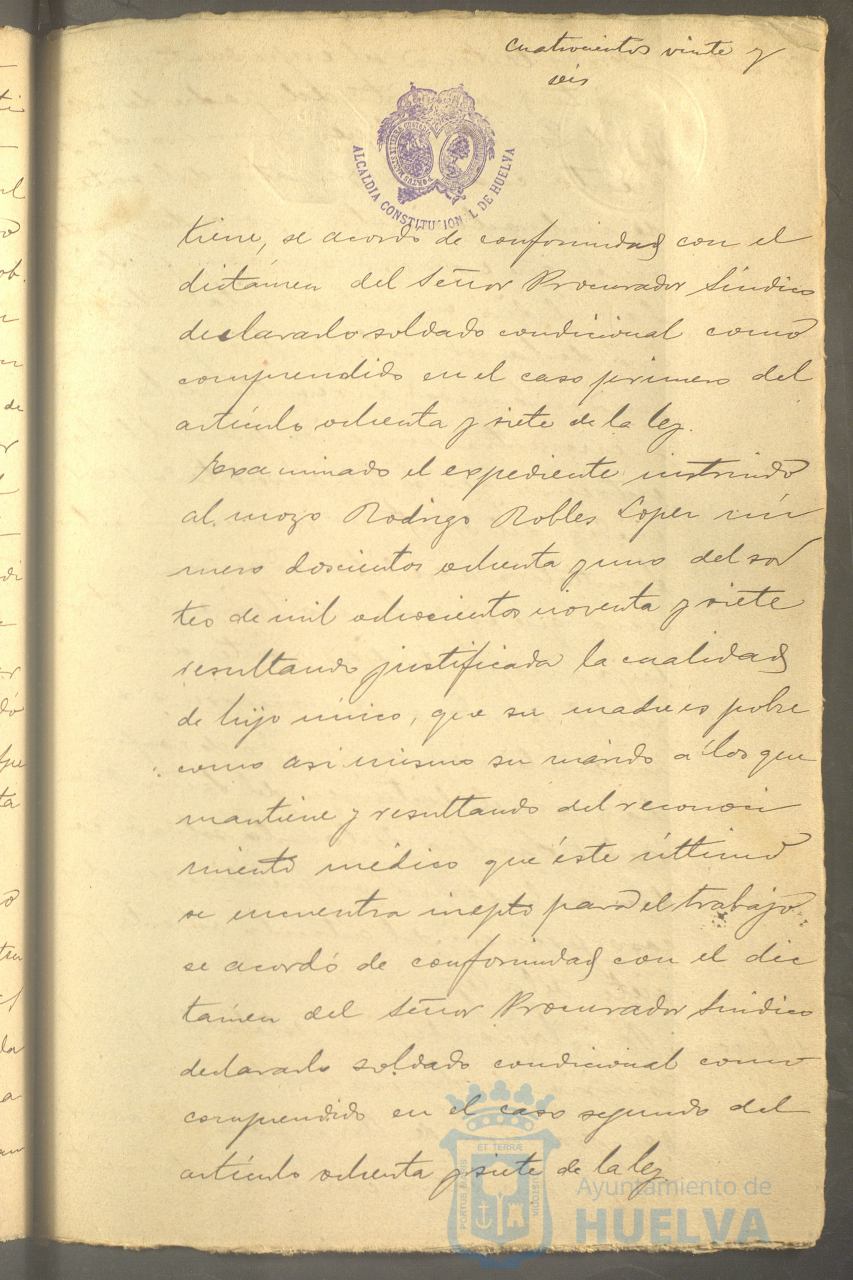 cuatrocientos veinte y
seis
ALCALDIA CONSTITUCIONAL DE HUELVA
tiene, se acordo de conformidad con el
dictámen del Señor Procurador Síndico
declararlo soldado condicional como
comprendido en el caso primero del
artículo ochenta y siete de la ley.
Examinado el expediente instruido
al mozo Rodrigo Robles Lopez nú
mero doscientos ochenta y uno del sor
teo de mil ochocientos noventa y siete
resultando justificada la cualidad
de hijo único, que su madre es pobre
como asi mismo su marido a los que
mantiene y resultando del reconoci
miento médico que éste último
se encuentra inepto para el trabajo.
se acordó de conformidad con el dic
tamen del Señor Procurador Sindico
declararlo soldado condicional como
comprendido en el caso segundo del
artículo ochenta y siete de la ley
ET TERRÆ
PORTUS MARIS
CUSTODIA
Ayuntamiento de
HUELVA